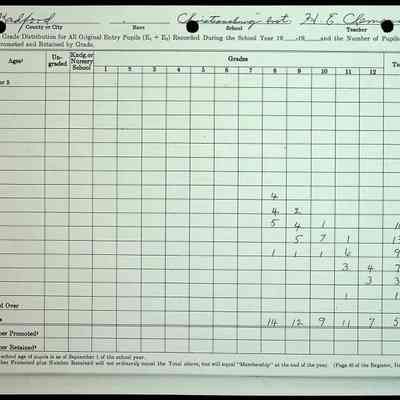 Radford Christiansburg Inst. H E Clem
County or City Race School Teacher
Grade Distribution for All Original Entry Pupils (E₁ + E₂) Recorded During the School Year 19 -19 and the Number of Pupils
Promoted and Retained by Grade.
Ages¹ Un-graded Kndg. or Nursery School Grades
1 2 3 4 5 6 7 8 9 10 11 12
4
4 2
5 4 1
5 7 1
1 1 1 6 9
3 4 7
3 3
1 1
d Over
14 12 9 11 7 5
ber Promoted²
ber Retained²
school age of pupils is as of September 1 of the school year.
ber Promoted plus Number Retained will not ordinarily equal the Total above, but will equal "Membership" at the end of the year. (Page 40 of the Register,